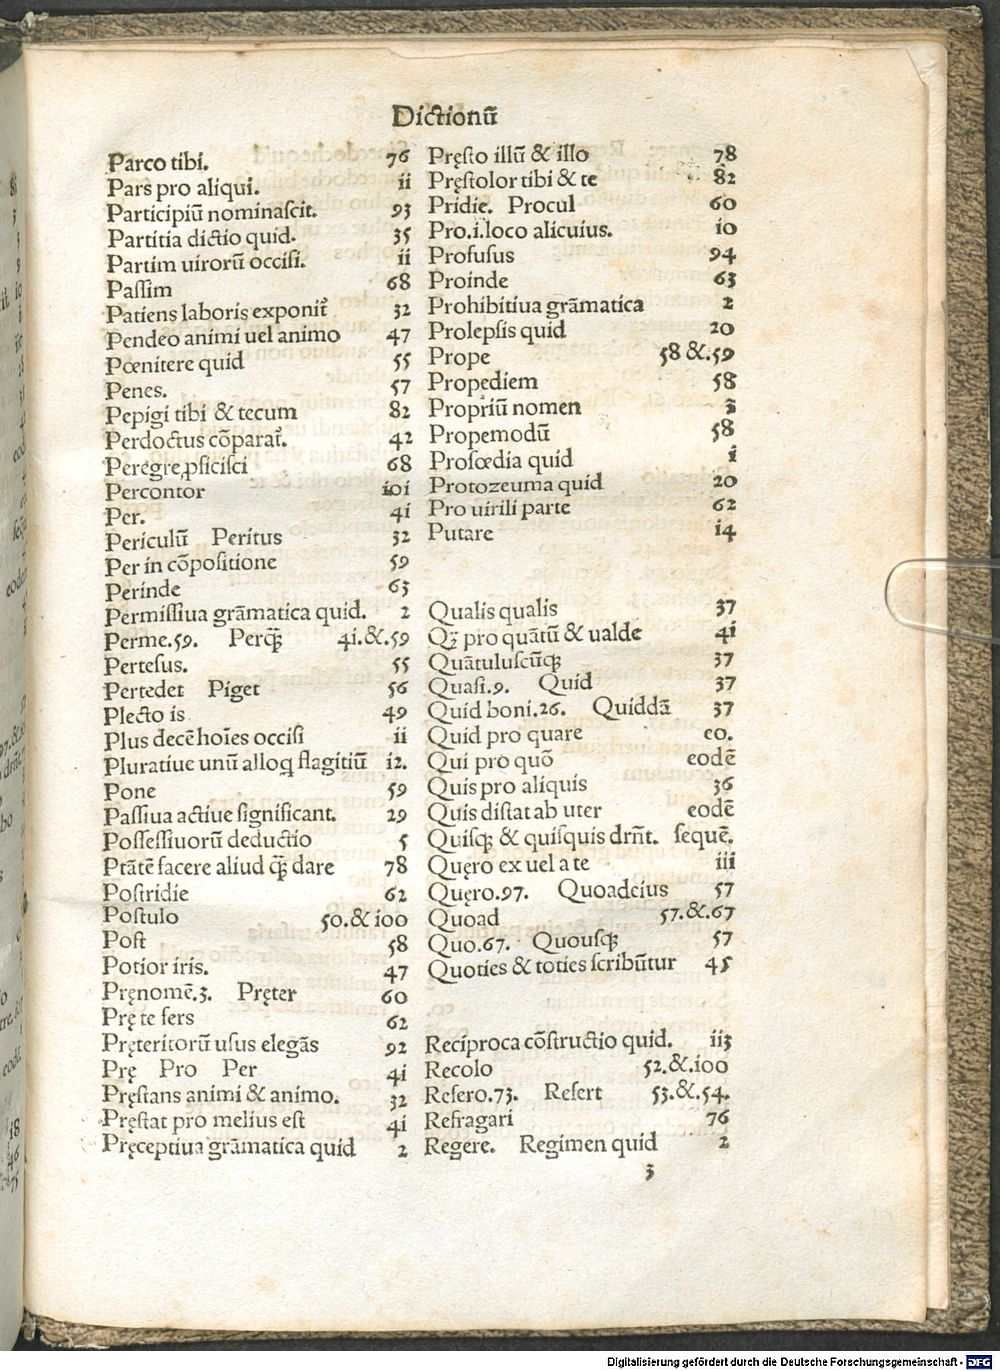 Dictionū
Parco tibi. 76
Pars pro aliqui. ii
Participiū nominascit. 93
Partitia dictio quid. 35
Partim uirorū occisi. ii
Passim 68
Patiens laboris exponit᷑ 32
Pendeo animi uel animo 47
Pœnitere quid 55
Penes. 57
Pepigi tibi & tecum 82
Perdoctus cōparat᷑. 42
Peregre ꝓficisci 68
Percontor ioi
Per. 4i
Periculū Peritus 32
Per in cōpositione 59
Perinde 63
Permissiua grāmatica quid. 2
Perme.59. Perq̄ꝫ 4i.&.59
Pertesus. 55
Pertedet Piget 56
Plecto is 49
Plus decē hoīes occisi ii
Pluratiue unū alloq̨ flagitiū i2.
Pone 59
Passiua actiue significant. 29
Possessiuorū deductio 5
Ptātē facere aliud q̄ꝫ dare 78
Postridie 62
Postulo 50.&i00
Post 58
Potior iris. 47
Pręnomē.3. Pręter 60
Prę te fers 62
Pręteritorū usus elegās 92
Prę Pro Per 4i
Pręstans animi & animo. 32
Pręstat pro melius est 4i
Pręceptiua grāmatica quid 2
Pręsto illū & illo 78
Pręstolor tibi & te 82
Pridie. Procul 60
Pro.i.loco alicuius. io
Profusus 94
Proinde 63
Prohibitiua grāmatica 2
Prolepsis quid 20
Prope 58 &.59
Propędiem 58
Propriū nomen 3
Propemodū 58
Prosœdia quid i
Protozeuma quid 20
Pro uirili parte 62
Putare i4
Qualis qualis 37
Qꝫ pro quātū & ualde 4i
Quātuluscūqꝫ 37
Quasi.9. Quid 37
Quid boni.26. Quiddā 37
Quid pro quare eo.
Qui pro quō eodē
Quis pro aliquis 36
Quis distat ab uter eodē
Quisqꝫ & quisquis drn̄t. sequē.
Quęro ex uel a te iii
Quęro.97. Quoadeius 57
Quoad 57.&.67
Quo.67. Quousqꝫ 57
Quoties & toties scribūtur 45
Reciproca cōstructio quid. ii3
Recolo 52.&.i00
Refero.73. Refert 53.&.54.
Refragari 76
Regere. Regimen quid 2
3
Digitalisierung gefördert durch die Deutsche Forschungsgemeinschaft - DFG